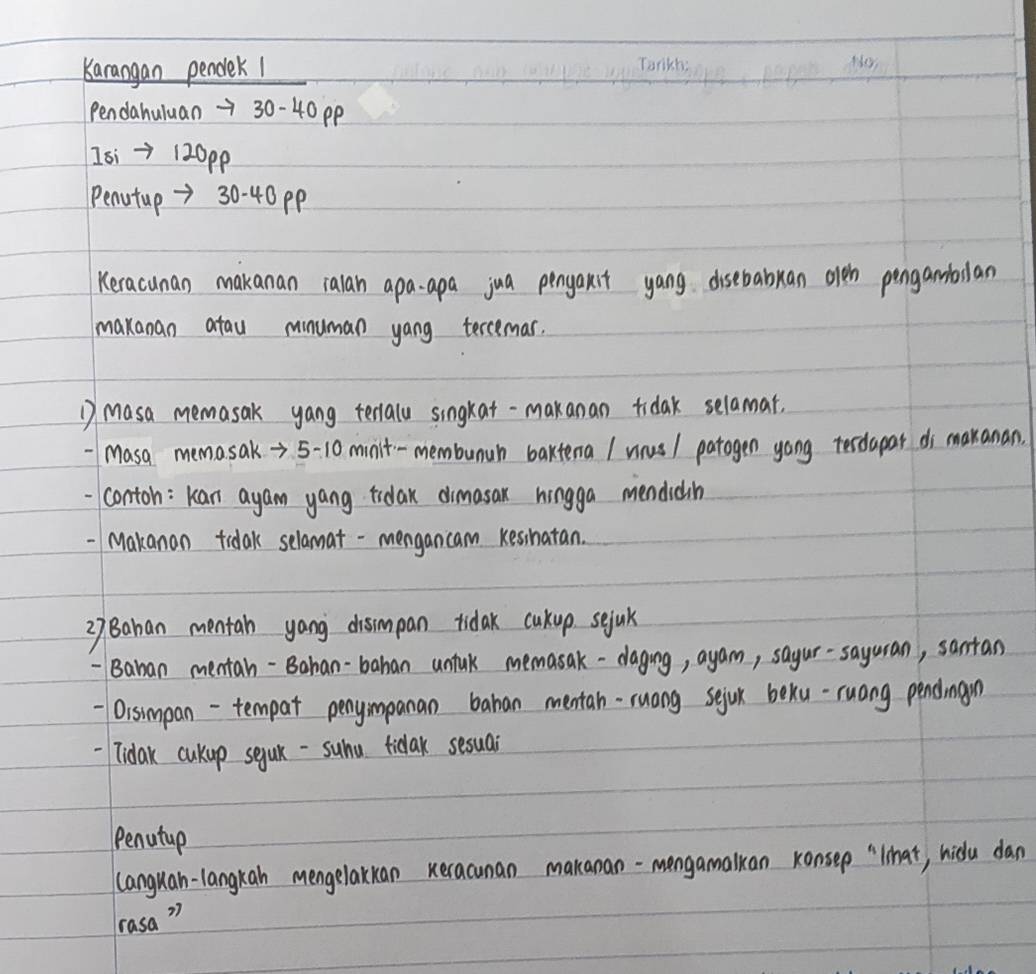 Tarikh: No:
Karangan pendek 1
Pendahuluan → 30-40 pp
Isi → 120pp
Penutup → 30-40 pp
Keracunan makanan ialah apa-apa jua penyakit yang disebabkan oleh pengambilan
makanan atau minuman yang tercemar.
1) Masa memasak yang terlalu singkat - makanan tidak selamat.
- Masa memasak → 5-10 minit - membunuh bakteria / virus / patogen yang terdapat di makanan.
- Contoh: kari ayam yang tidak dimasak hingga mendidih
- Makanan tidak selamat - mengancam kesihatan.
2) Bahan mentah yang disimpan tidak cukup sejuk
- Bahan mentah - Bahan-bahan untuk memasak - daging, ayam, sayur-sayuran, santan
- Disimpan - tempat penyimpanan bahan mentah - ruang sejuk beku - ruang pendingin
- Tidak cukup sejuk - suhu tidak sesuai
Penutup
Langkah-langkah mengelakkan keracunan makanan - mengamalkan konsep "lihat, hidu dan
rasa"